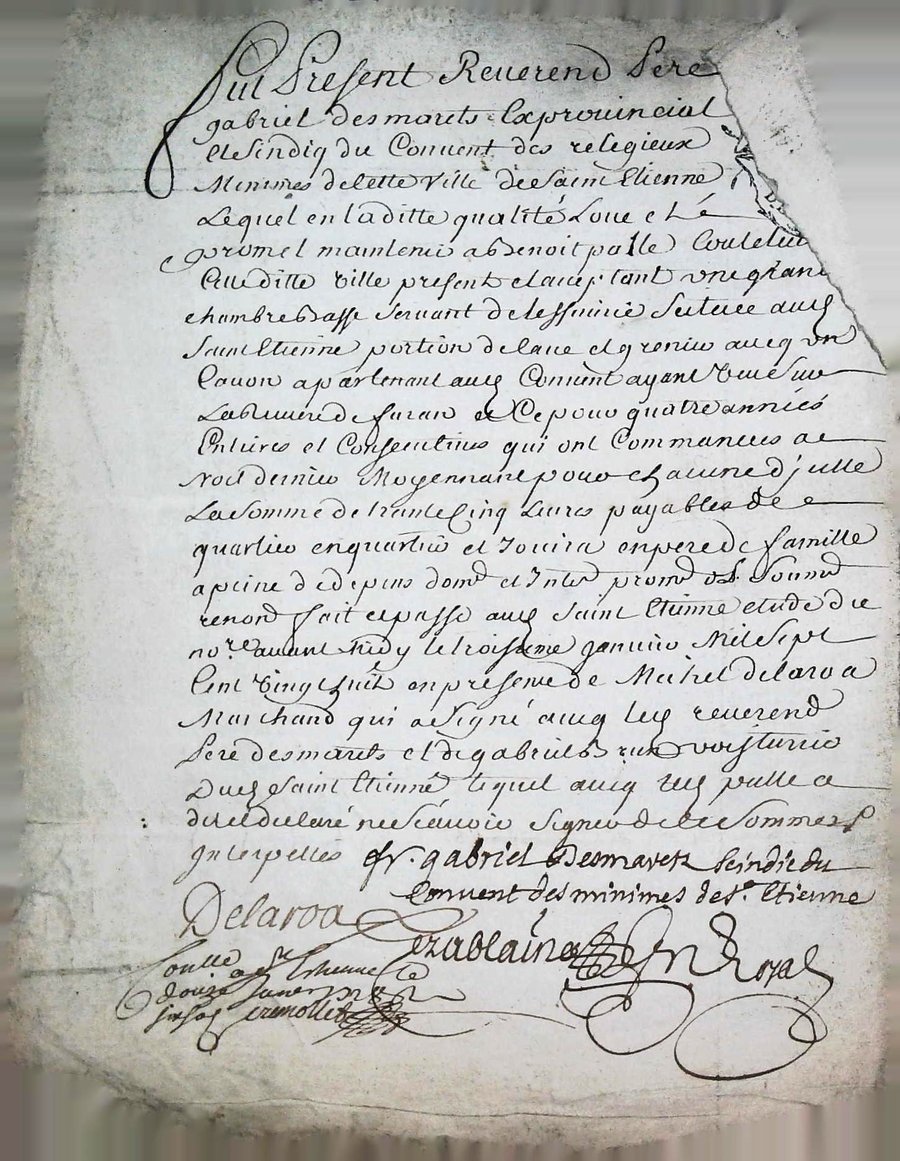 Fut Present Reverend Pere
gabriel desmarets Exprovincial
Et Sindiq du Couvent des relegieux
Minimes de Cette Ville de Saint Etienne
Lequel en la ditte qualité Loue et
promet maintenir a benoit palle Coutelier
Cette ditte Ville present et accep: tant une grande
chambre basse Servant de lessiuie Scituee aud
Saint Etienne portion de Cave et grenier avecq un
Cavon apartenant aud Couvent ayant Veue Sur
La Riviere de furan et Ce pour quatre années
Entieres et Consecutives qui ont Commancees a
Noël dernier Moyennant pour chacune d'jcelle
La Somme de trente Cinq Livres payables de
quartier en quartier et Jouira en pere de famille
a peine de depens domd et Inter promd obl Soumd
renond fait et passé aud Saint Etienne etude de
nore avant midy le troisieme janvier Mil Sept
Cent Vingt huit en presence de Michel delaroa
Marchand qui a Signé avecq led reverend
Pere desmarets et de gabriel brun voisturier
Dud Saint Etienne lequel avecq led palle a
dit et declaré ne Scavoir Signer de ce Sommers
Interpelles fr. gabriel Desmarets Scindic du
Couvent des minimes de st. Etienne
Delaroa Ezablain Royal
Coullé a st Estienne le
douze janvier
six sols